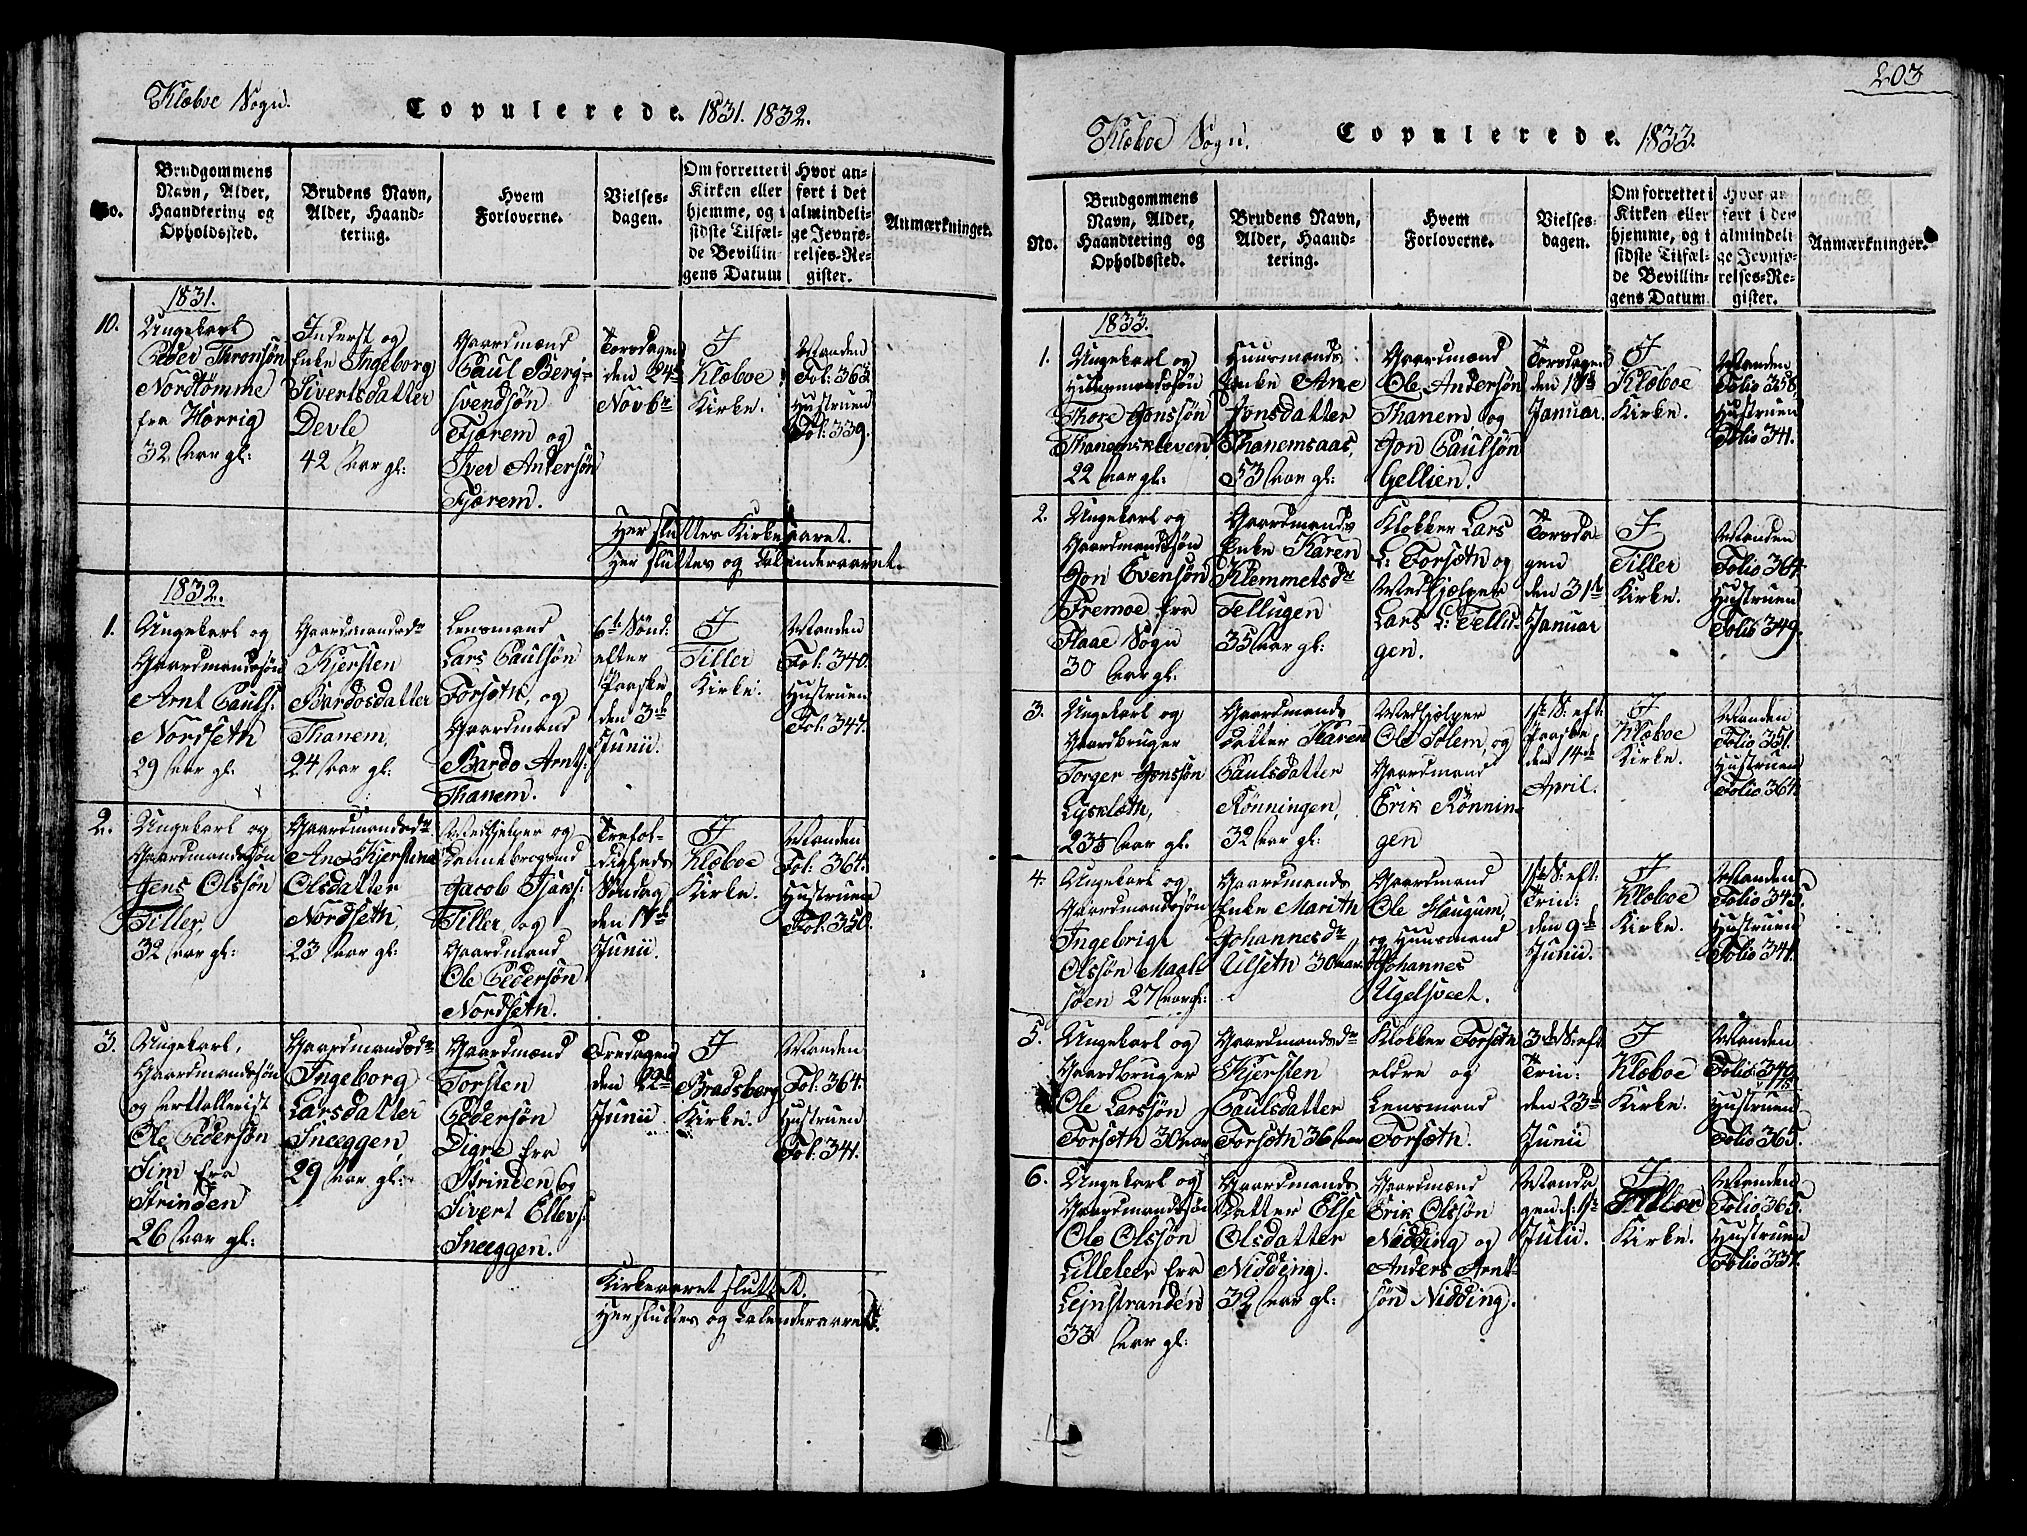 Klæboe Sogn.
Copulerede. 1831. 1832.
No.
Brudgommens
Navn, Alder,
Haandtering og
Opholdssted.
Brudens Navn,
Alder, Haand-
tering.
Hvem
Forloverne.
Vielses-
dagen.
Om forrettet i
Kirken eller
hjemme, og i
sidste Tilfæl-
de Bevillin-
gens Datum
Hvor an-
ført i det
almindeli-
ge Jevnfø-
relses-Re-
gister.
Anmærkninger.
1831.
10.
Ungekarl
Peder Thronsøn
Nordtømme
fra Horrig
32 Aar gl:
Inderst og
Enke Ingeborg
Sivertsdatter
Devle
42 Aar gl:
Gaardmænd
Paul Berg-
svendsøn
Fjærem og
Iver Andersøn
Fjærem.
Torsdagen
den 24de
Novbr
I
Klæboe
Kirke.
Manden
Fol: 363.
Hustruen
Fol: 339.
Her sluttes Kirkeaaret.
Her sluttes og Calenderaaret.
1832.
1.
Ungekarl og
Gaardmandssøn
Arnt Pauls:
Nordseth
29 Aar gl:
Gaardmandsdr
Kjersten
Bardosdatter
Thanem,
24 Aar gl:
Lensmand
Lars Paulsøn
Forseth, og
Gaardmand
Bardo Arnts:
Thanem.
6te Sønd:
efter
Paaske,
den 3de
Junii.
I
Tiller
Kirke.
Manden
Fol: 340.
Hustruen
Fol: 347.
2.
Ungekarl og
Gaardmandssøn
Jens Olssøn
Tiller,
32 Aar gl:
Gaardmandsdr
Ane Kjerstina
Olsdatter
Nordseth,
23 Aar gl:
Medhjelper og
Dannebrogsmd
Jacob Isaks:
Tiller, og
Gaardmand
Ole Pedersøn
Nordseth.
Trefol-
digheds
Søndag
den 17de
Junii.
I
Klæboe
Kirke.
Manden
Fol: 364.
Hustruen
Fol: 350.
3.
Ungekarl,
Gaardmandssøn
og Artillerist
Ole Pedersøn
Sim fra
Strinden
26 Aar gl:
Gaardmandsdr
Ingeborg
Larsdatter
Sneeggen,
29 Aar gl:
Gaardmænd
Torsten
Pedersøn
Digre fra
Strinden og
Sivert Ellevs:
Sneeggen.
Fredagen
den 22de
Junii.
I
Bradsberg
Kirke.
Manden
Fol: 364.
Hustruen
Fol: 341.
Kirkeaaret sluttet.
Her sluttes og Calenderaaret.
203
Klæboe Sogn.
Copulerede. 1833.
No.
Brudgommens
Navn, Alder,
Haandtering og
Opholdssted.
Brudens Navn,
Alder, Haand-
tering.
Hvem
Forloverne.
Vielses-
dagen.
Om forrettet i
Kirken eller
hjemme, og i
sidste Tilfæl-
de Bevillin-
gens Datum
Hvor an-
ført i det
almindeli-
ge Jevnfø-
relses-Re-
gister.
Anmærkninger.
1833.
1.
Ungekarl og
Huusmandssøn
Thore Jonssøn
Thanemskleven,
22 Aar gl:
Huusmands
Enke Ane
Jonsdatter
Thanemsaas,
53 Aar gl:
Gaardmænd
Ole Andersøn
Thanem, og
Jon Paulsøn
Gellien.
Torsdagen
den 10de
Januar.
I
Klæboe
Kirke.
Manden
Folio 358,
Hustruen
Folio 341.
2.
Ungekarl og
Gaardmandssøn
Jon Evensøn
Fremoe fra
Flaae Sogn
30 Aar gl:
Gaardmands
Enke Karen
Klemmetsdr
Tellugen
35 Aar gl:
Klokker Lars
L: Forseth og
Medhjælper
Lars L: Tellu-
gen.
Torsda-
gen
den 31te
Januar
I
Tiller
Kirke.
Manden
Folio 364.
Hustruen
Folio 349.
3.
Ungekarl og
Gaardbruger
Torger Jonssøn
Lysklæth,
23 Aar gl:
Gaardmands
datter Karen
Paulsdatter
Rønningen,
32 Aar gl:
Medhjælper
Ole Solem, og
Gaardmand
Erik Rønnin-
gen
1ste S: eft:
Paaske
den 14de
April.
I
Klæboe
Kirke.
Manden
Folio 351.
Hustruen
Folio 364.
4.
Ungekarl og
Gaardmandssøn
Ingebrigt
Olssøn Maale
søen 27 Aar gl:
Gaardmands
Enke Marith
Johannesdr
Ulseth 30 Aar.
Gaardmand
Ole Haugum,
og Huusmand
Johannes
Ugelsveet.
1ste S: eft:
Trin:
den 9de
Junii.
I
Klæboe
Kirke.
Manden
Folio 345.
Hustruen
Folio 341.
5.
Ungekarl og
Gaardbruger
Ole Larssøn
Forseth 30 Aar
Gaardmandsdr
Kjersten
Paulsdatter
Forseth 36 Aar
Klokker Forseth
eldre og
Lensmand
Forseth.
3de S: eft
Trin:
den 23de
Junii
I
Klæboe
Kirke.
Manden
Hustruen
Folio 365.
6.
Ungekarl og
Gaardmandssøn
Ole Olssøn
Lilleleer fra
Lejnstranden
33 Aar gl:
Gaardmands
Datter Else
Olsdatter
Nidding.
32 Aar gl:
Gaardmænd
Erik Olssøn
Nidding og
Anders Arnt-
søn Nidding.
Manda
gen d: 1ste
Julii.
I
Kirke.
Manden
Folio 365.
Hustruen
Folio 337.